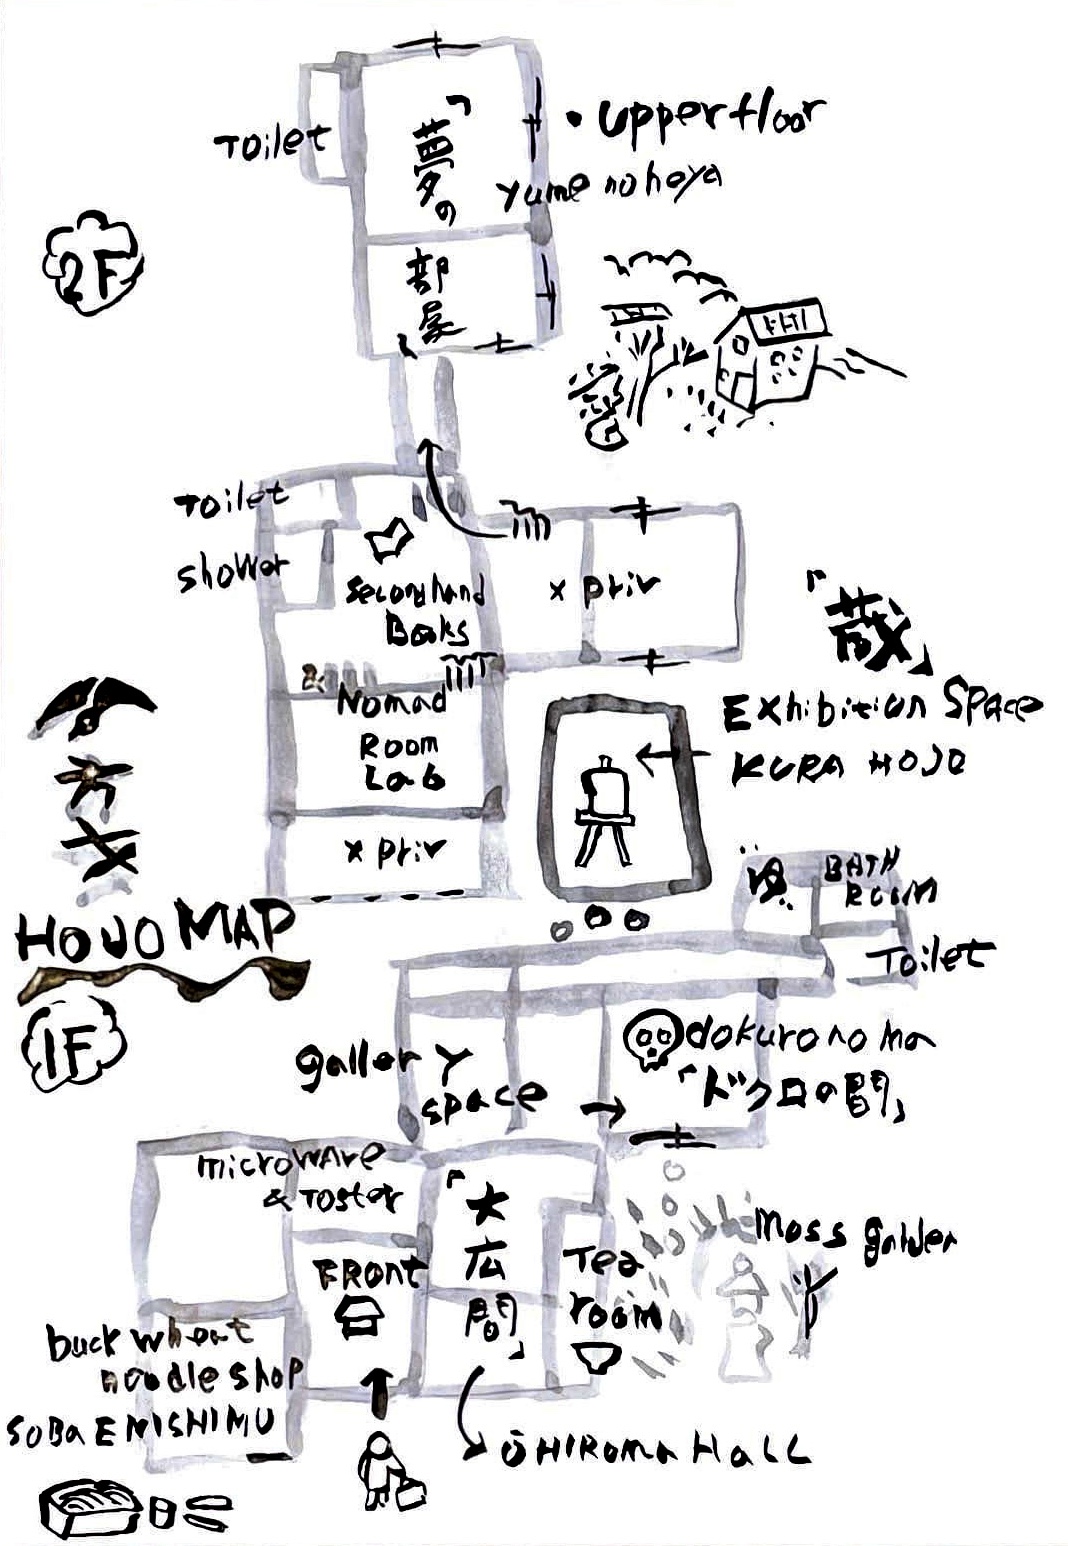 Toilet
「夢の
部屋
・upper floor
yume no heya
2F
Toilet
shower
Secondhand
Books
&
Nomad
Room
Lab
x priv
x priv
「蔵」
Exhibition Space
KURA HOJO
HOJO MAP
BATH
ROOM
Toilet
1F
gallery
space
dokuro no ma
「ドクロの間」
microware
& Toster
「大
広
間」
FRONT
Tea
room
Moss garden
buck wheat
noodle shop
SOBA ENISHIMU
ŌHIROMA HALL